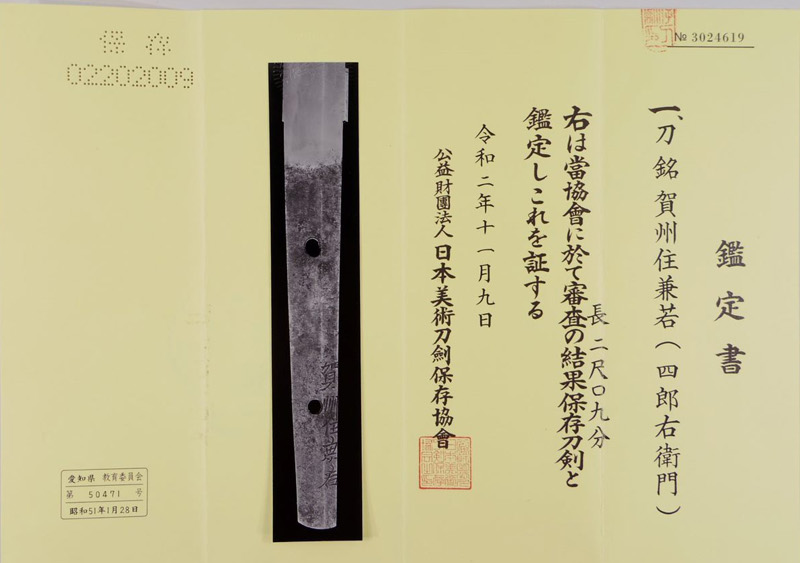 № 3024619
鑑定書
一、刀 銘 賀州住兼若(四郎右衛門)
長 二尺〇九分
右は當協會に於て審査の結果保存刀剣と
鑑定しこれを証する
令和二年十一月九日
公益財團法人 日本美術刀劍保存協會
賀州住兼若
保存
02202009
愛知県 教育委員会
第 50471 号
昭和51年1月28日